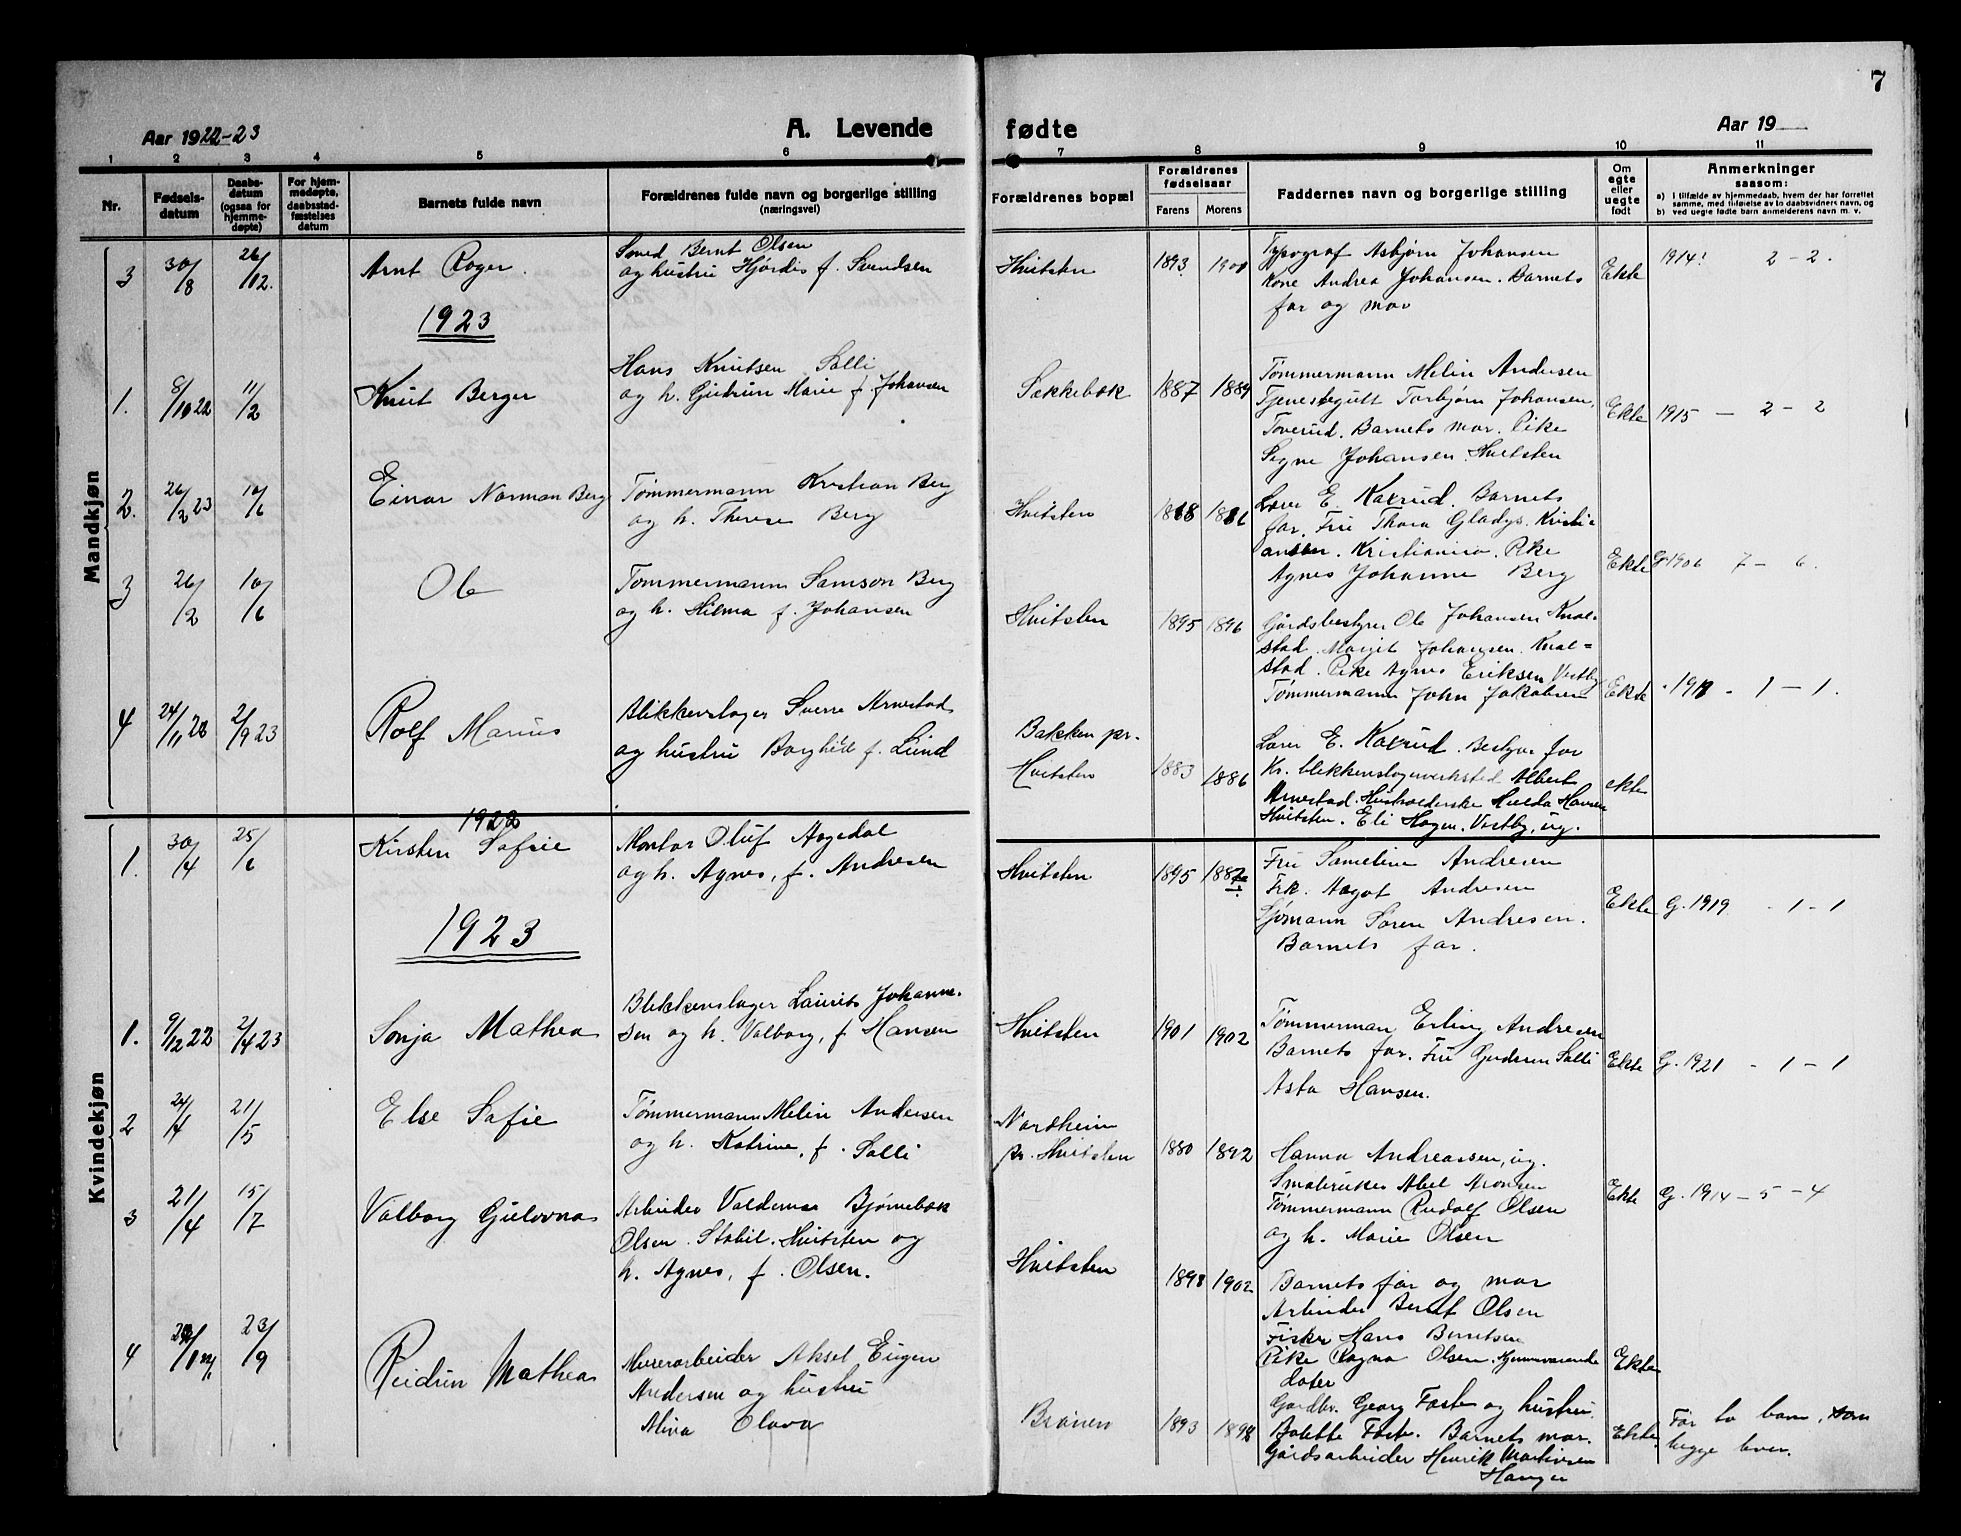 7
Aar 1922-23
A. Levende
fødte
Aar 19
1 2 3 4 5 6 7 8 9 10 11
Nr.
Fødsels-
datum
Daabs-
datum
(ogsaa for
hjemme-
døpte)
For hjem-
medøpte,
daabsstad-
fæstelses
datum
Barnets fulde navn
Forældrenes fulde navn og borgerlige stilling
(næringsvei)
Forældrenes bopæl
Forældrenes
fødselsaar
Farens Morens
Faddernes navn og borgerlige stilling
Om
egte
eller
uegte
født
Anmerkninger
saasom:
a) i tilfælde av hjemmedaab, hvem der har forrettet
samme, med tilføielse av to daabsvidners navn, og
b) ved uegte fødte barn anmelderens navn m. v.
Mandkjøn
3 30/8 26/12. Arnt Roger.
Smed Bernt Olsen
og hustru Hjørdis f. Svendsen
Hvitsten 1893 1901
Typograf Asbjørn Johansen
Kone Andrea Johansen. Barnets
far og mor
Ekte 1914! 2-2.
1923
1. 8/10 22 11/2 Knut Berger
Hans Knutsen Solli
og h. Gudrun Marie f. Johansen
Sækkebæk 1887 1889
Tømmermann Melin Andersen
Tjenestegutt Torbjørn Johansen,
Toverud. Barnets mor. Pike
Signe Johansen. Hvitsten
Ekte 1915 - 2 - 2
2. 26/2 23 10/6 Einar Norman Berg
Tømmermann Kristian Berg
og h. Therese Berg
Hvitsten
Lærer E. Kaxrud. Barnets
far. Fru Thora Gladys Kristi-
ansen. Kristiania. Pike
Agnes Johanne Berg
Ekte G 1906 7 - 6.
3 26/2 10/6 Ole
Tømmermann Samson Berg
og h. Hilma f. Johansen
Hvitsten 1895 1896
Gårdsbestyrer Ole Johansen Knal-
stad. Margit Johansen. Knal=
stad. Pike Agnes Eriksen Vestby
Tømmermann John Jakobsen
Ekte - 1 - 1.
4 24/11 22 2/9 23 Rolf Marius
Blikkenslager Sverre Arnestad
og hustru Borghild f. Lund
Bakken pr.
Hvitsten 1883 1886
Lærer E. Kaxrud. Bestyrer for
Kr. blikkenslagerverksted Albert
Arnestad. Husholderske Hulda Hansen
Hvitsten. Eli Hagen. Vestby, ug.
ekte
Kvindekjøn
1922
1. 30/4 25/6 Kirsten Sofie
Montør Oluf Aagedal
og h. Agnes, f. Andresen
Hvitsten 1895
Fru Sameline Andresen
Frk. Aagot Andresen
Sjømann Søren Andresen.
Barnets far.
Ekte G. 1919 - 1 - 1
1923
1. 9/12 22 2/4 23 Sonja Mathea
Blikkenslager Laurits Johanne-
sen og h. Valborg, f Hansen
Hvitsten 1901 1902
Tømmerman Erling Andresen
Barnets far. Fru Gudrun Solli
Asta Hansen.
Ekte G. 1921 - 1 - 1
2 24/4 21/5 Else Sofie
Tømmermann Melin Andersen
og h. Katrine, f. Solli
Nordheim
pr. Hvitsten 1880 1892
Hanna Andreassen, ug.
Småbruker Abel Aronsen
Tømmermann Rudolf Olsen
og h. Marie Olsen
Ekte G. 1914 - 5 - 4
3 21/4 15/7 Valborg Gulovna
Arbeider Valdemar Bjørnebæk
Olsen. Stabil. Hvitsten og
h. Agnes, f. Olsen.
Hvitsten 1898 1902
Barnets far og mor
Arbeider Bernt Olsen
Fisker Hans Berntsen
Pike Ragna Olsen. Hjemmeværende
dater
Ekte
4 23/9 Reidun Mathea
Murerarbeider Aksel Eugen
Andersen og hustru
Alvia Olava
Brönen 1893 1898
Gårdbr. Georg Foste og hustru.
Bolette Foste. Barnets mor.
Gårdsarbeider Henrik Martinsen
Haugen
Ekte
Før to barn, som
begge lever.